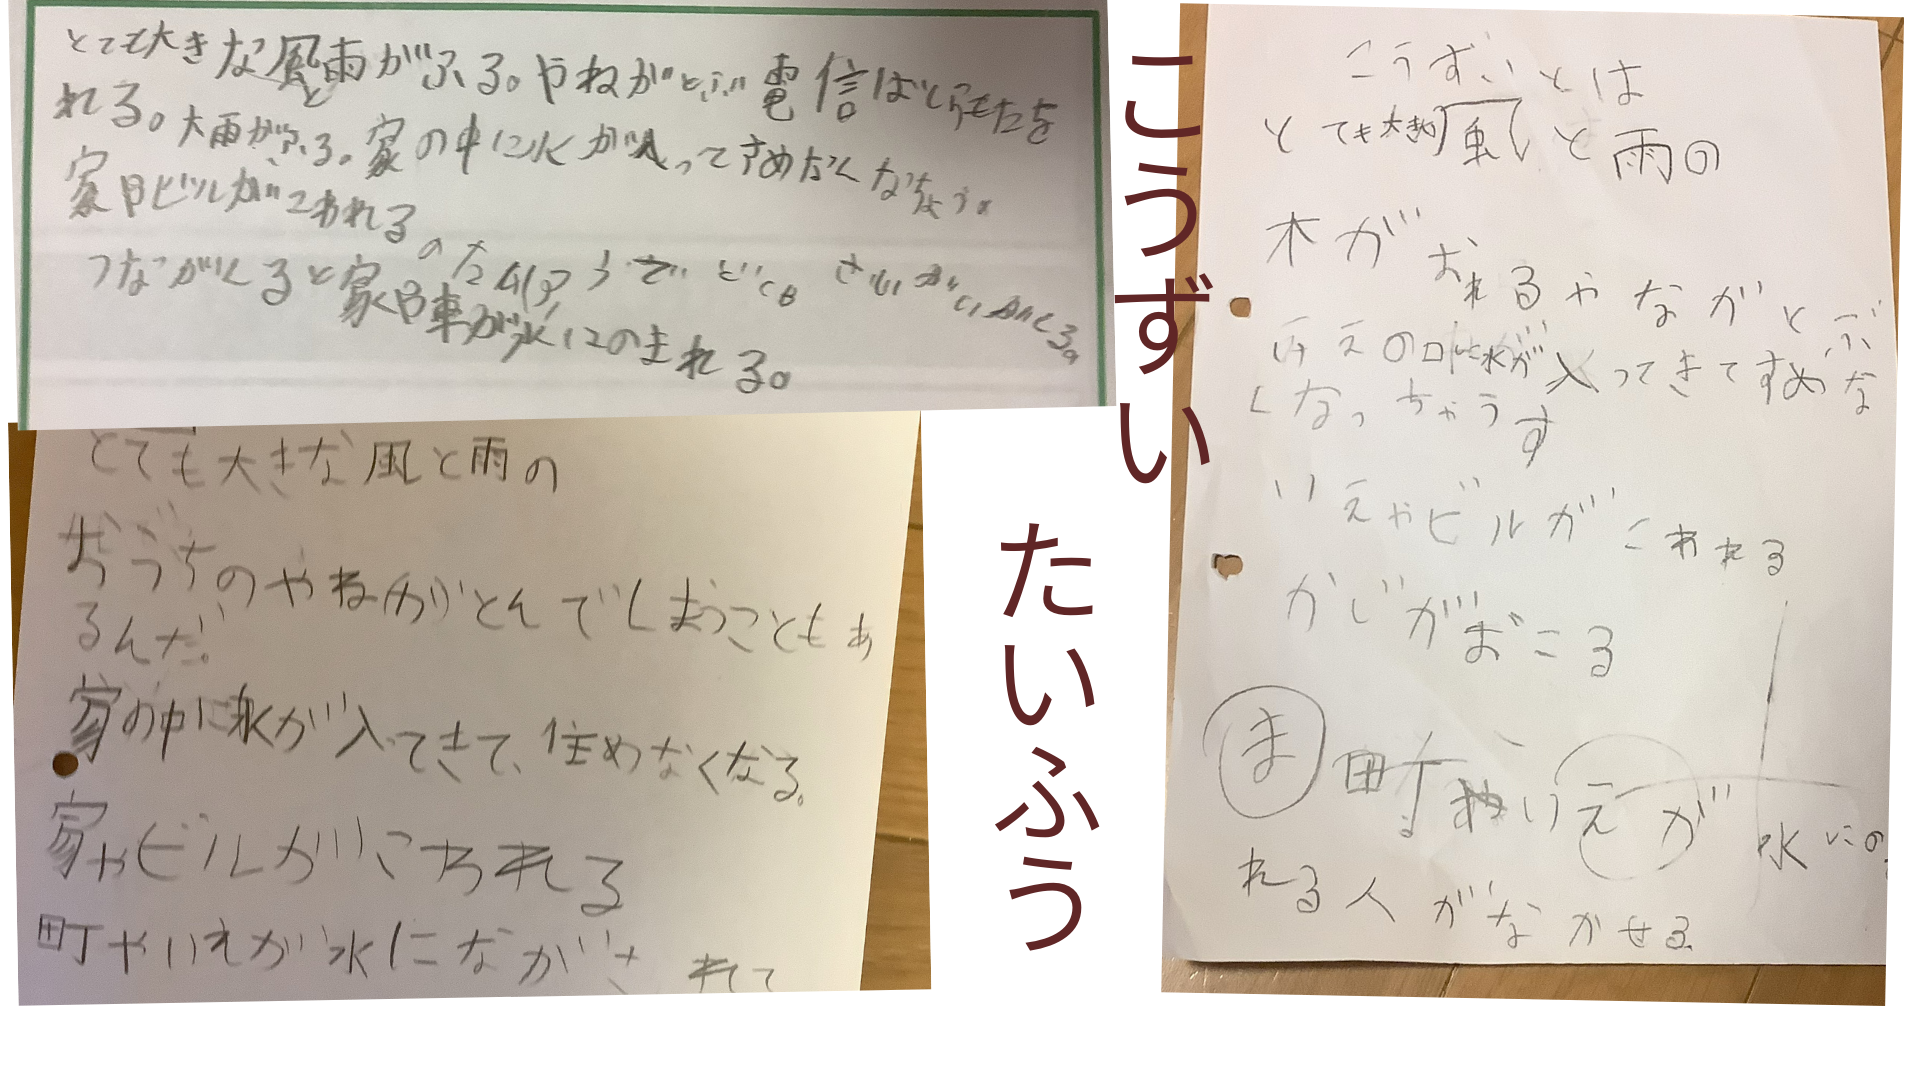 とても大きな風と雨がふる。やねがとぶ電信ばしらもたを
れる。大雨がふる。家の中に水が入ってきめなくなちゃう。
家やビルがこわれる
のたいふうで どこ
つながくると家や車が水にのまれる。
とても大きな風と雨の
おうちのやねがとんでしまうこともあ
るんだ。
家の中に水が入ってきて、住めなくなる。
家やビルがこわれる
町やいえが水にながされて
こうずい
たいふう
こうずいとは
とても大きな風と雨の
木がおれるやながとぶ
いえの中に水が入ってきてすめな
くなっちゃうす
いえやビルがこわれる
かじがおこる
ま 町やいえが水にの
れる人がながせる